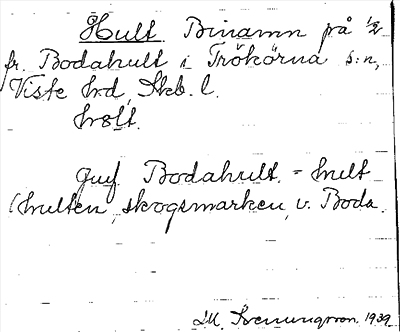 Hult Binamn på 1/2
fr. Bodahult i Trökörna s:n,
Viste hd, Skb. l.
hult.
Jmf Bodahult. = hult
(hulten, skogsmarken, v. Boda.
M. 1939